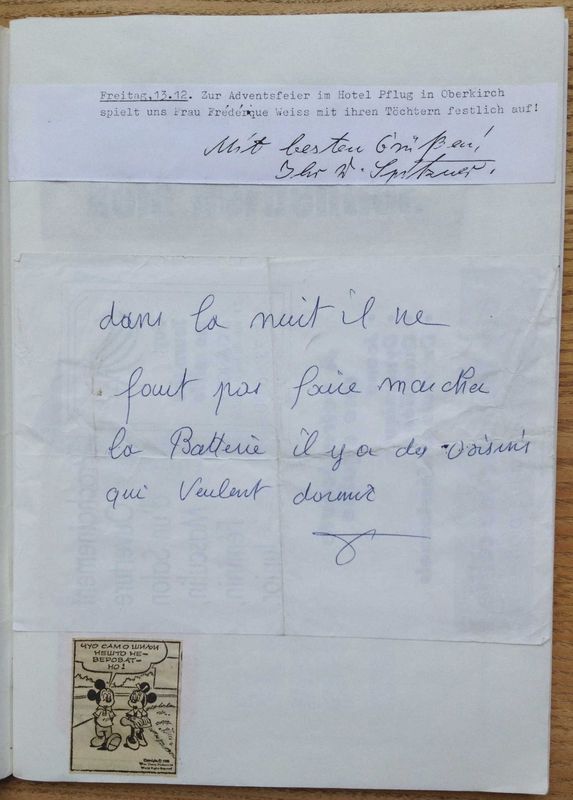 Freitag,13.12. Zur Adventsfeier im Hotel Pflug in Oberkirch
spielt uns Frau Frédérique Weiss mit ihren Töchtern festlich auf!
Mit besten Grüßen!
Ihr W. Spitzner.
dans la nuit il ne
faut pas faire marcher
la Batterie il y a des voisins
qui veulent dormir
ЧУО САМО ШИЉИ
НЕШТО НЕ-
ВЕРОВАТ-
НО!